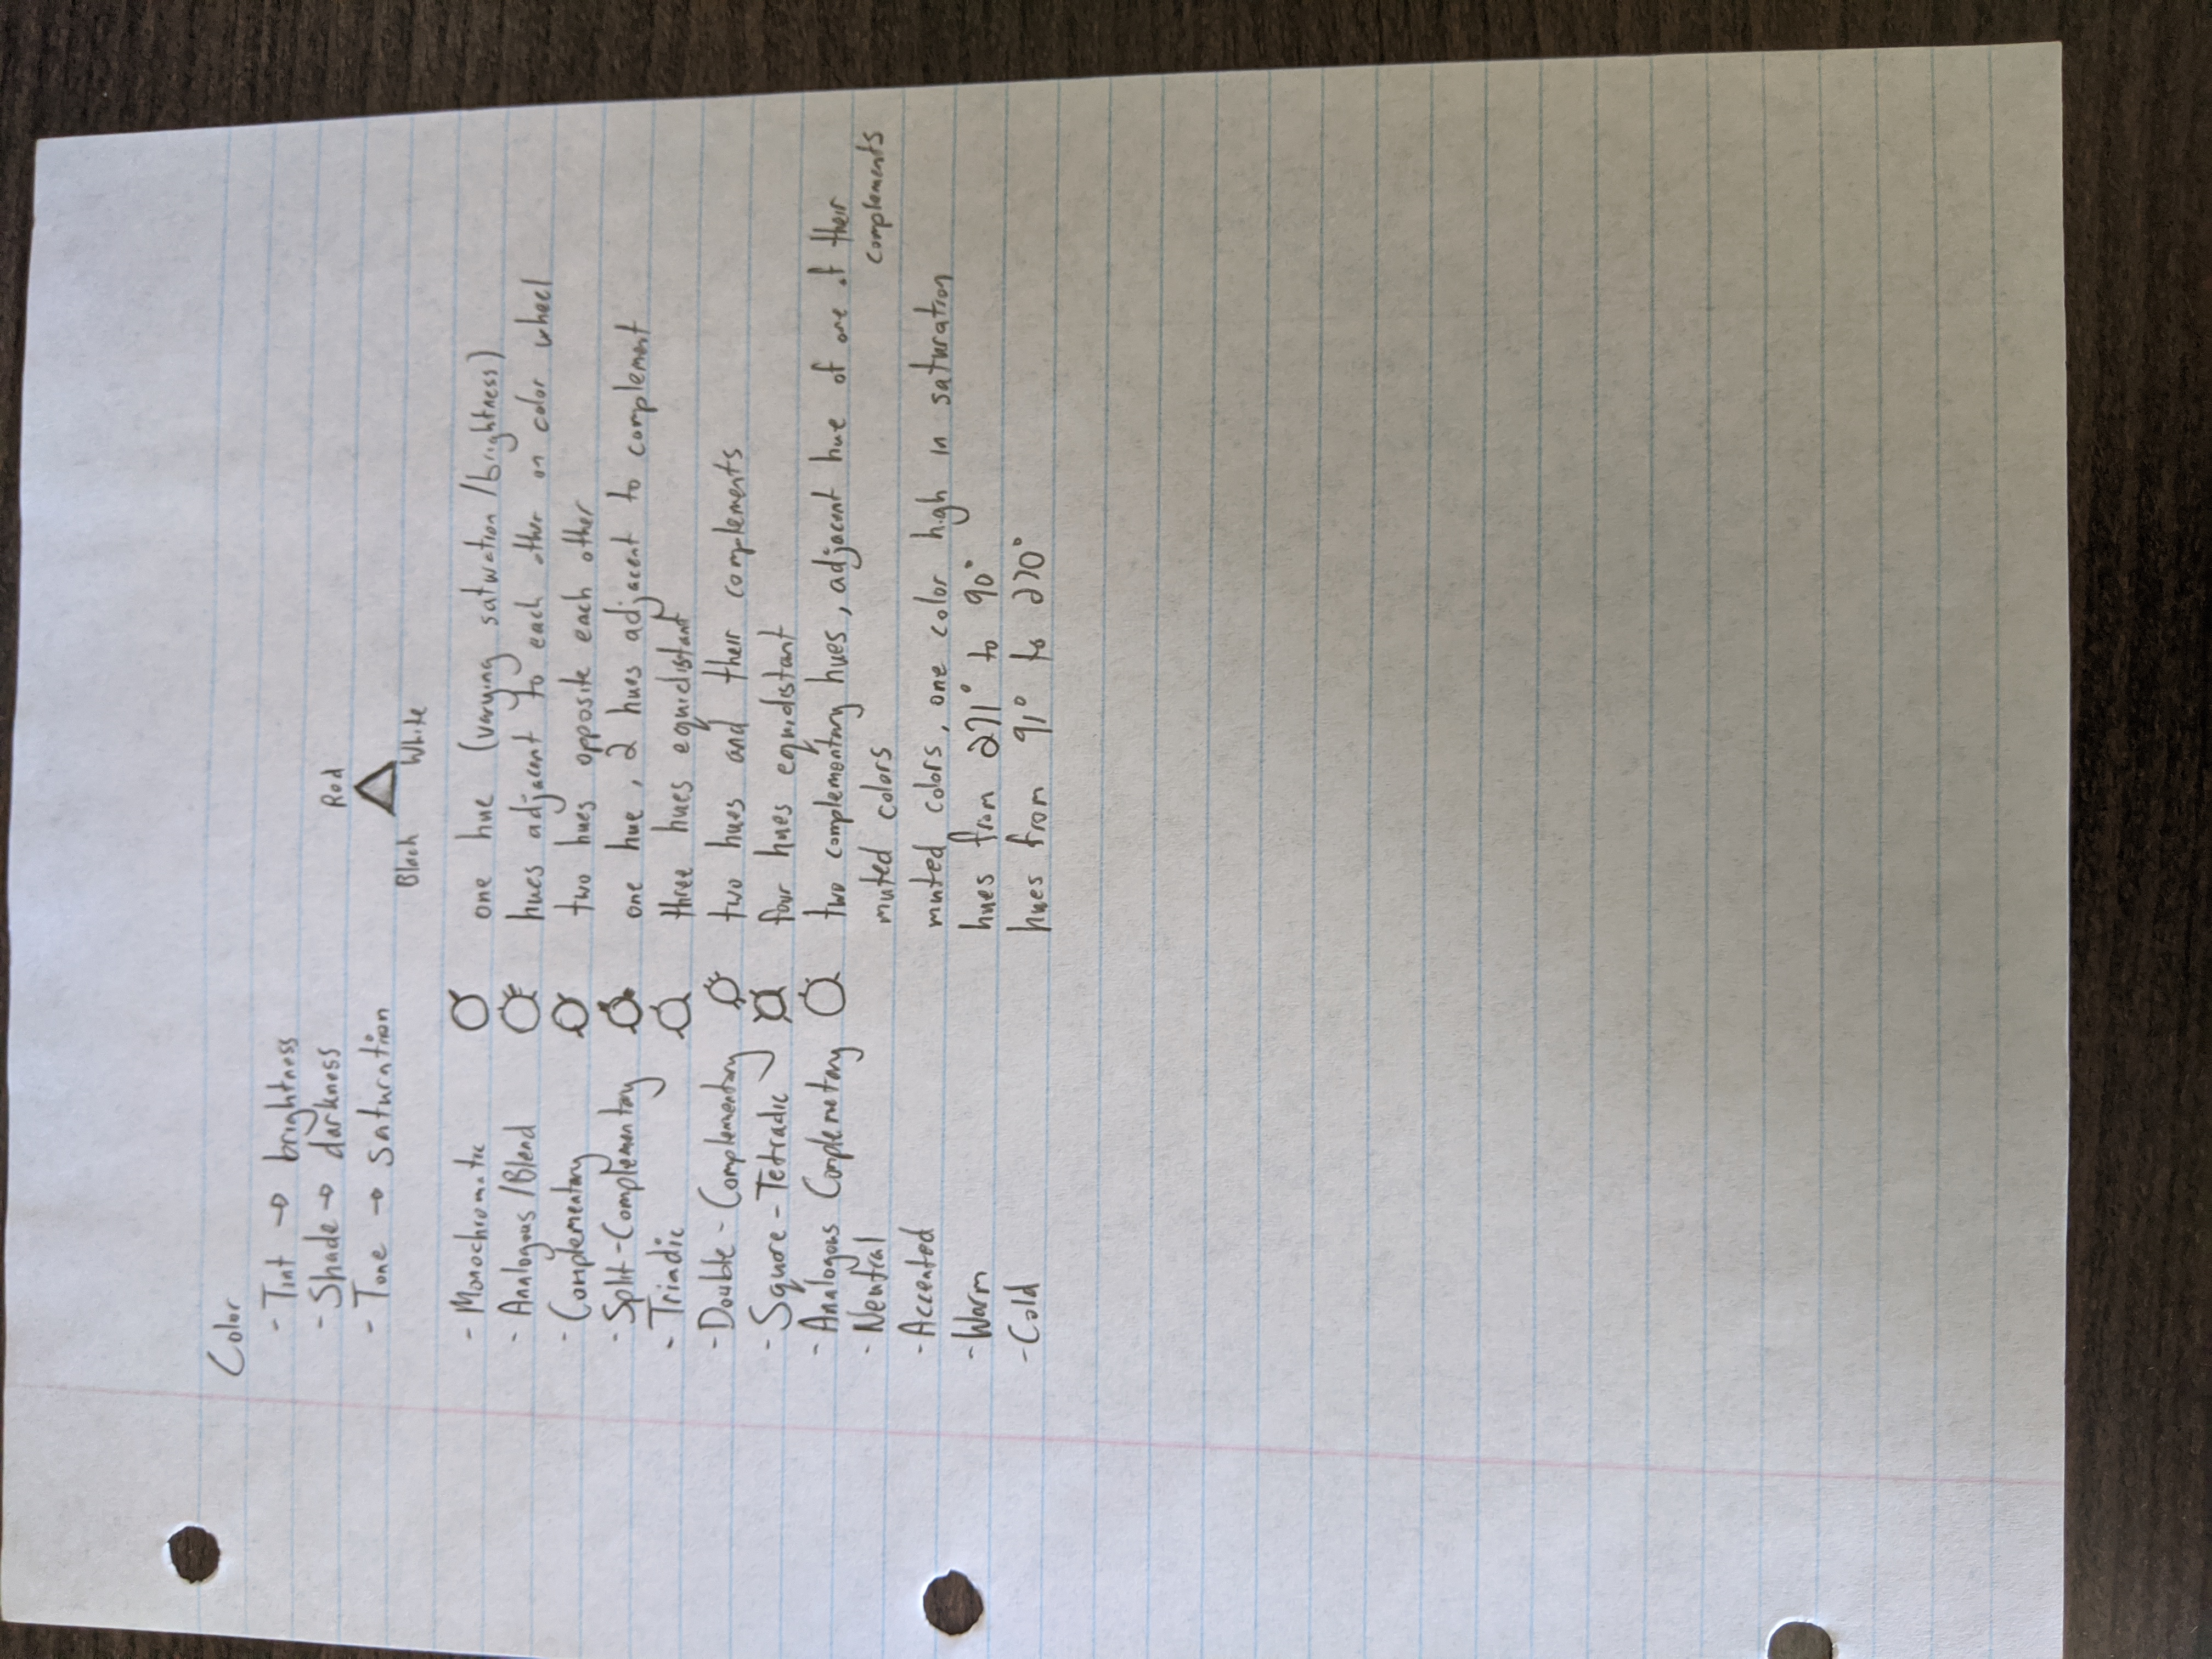 Color
- Tint → brightness
- Shade → darkness
- Tone → saturation
Red
Black White
- Monochromatic one hue (varying saturation/brightness)
- Analogous/Blend hues adjacent to each other on color wheel
- Complementary two hues opposite each other
- Split-Complementary one hue, 2 hues adjacent to complement
- Triadic three hues equidistant
- Double-Complementary two hues and their complements
- Square-Tetradic four hues equidistant
- Analogous Complemetary two complementary hues, adjacent hue of one of their
complements
- Neutral muted colors
- Accented muted colors, one color high in saturation
- Warm hues from 271° to 90°
- Cold hues from 91° to 270°